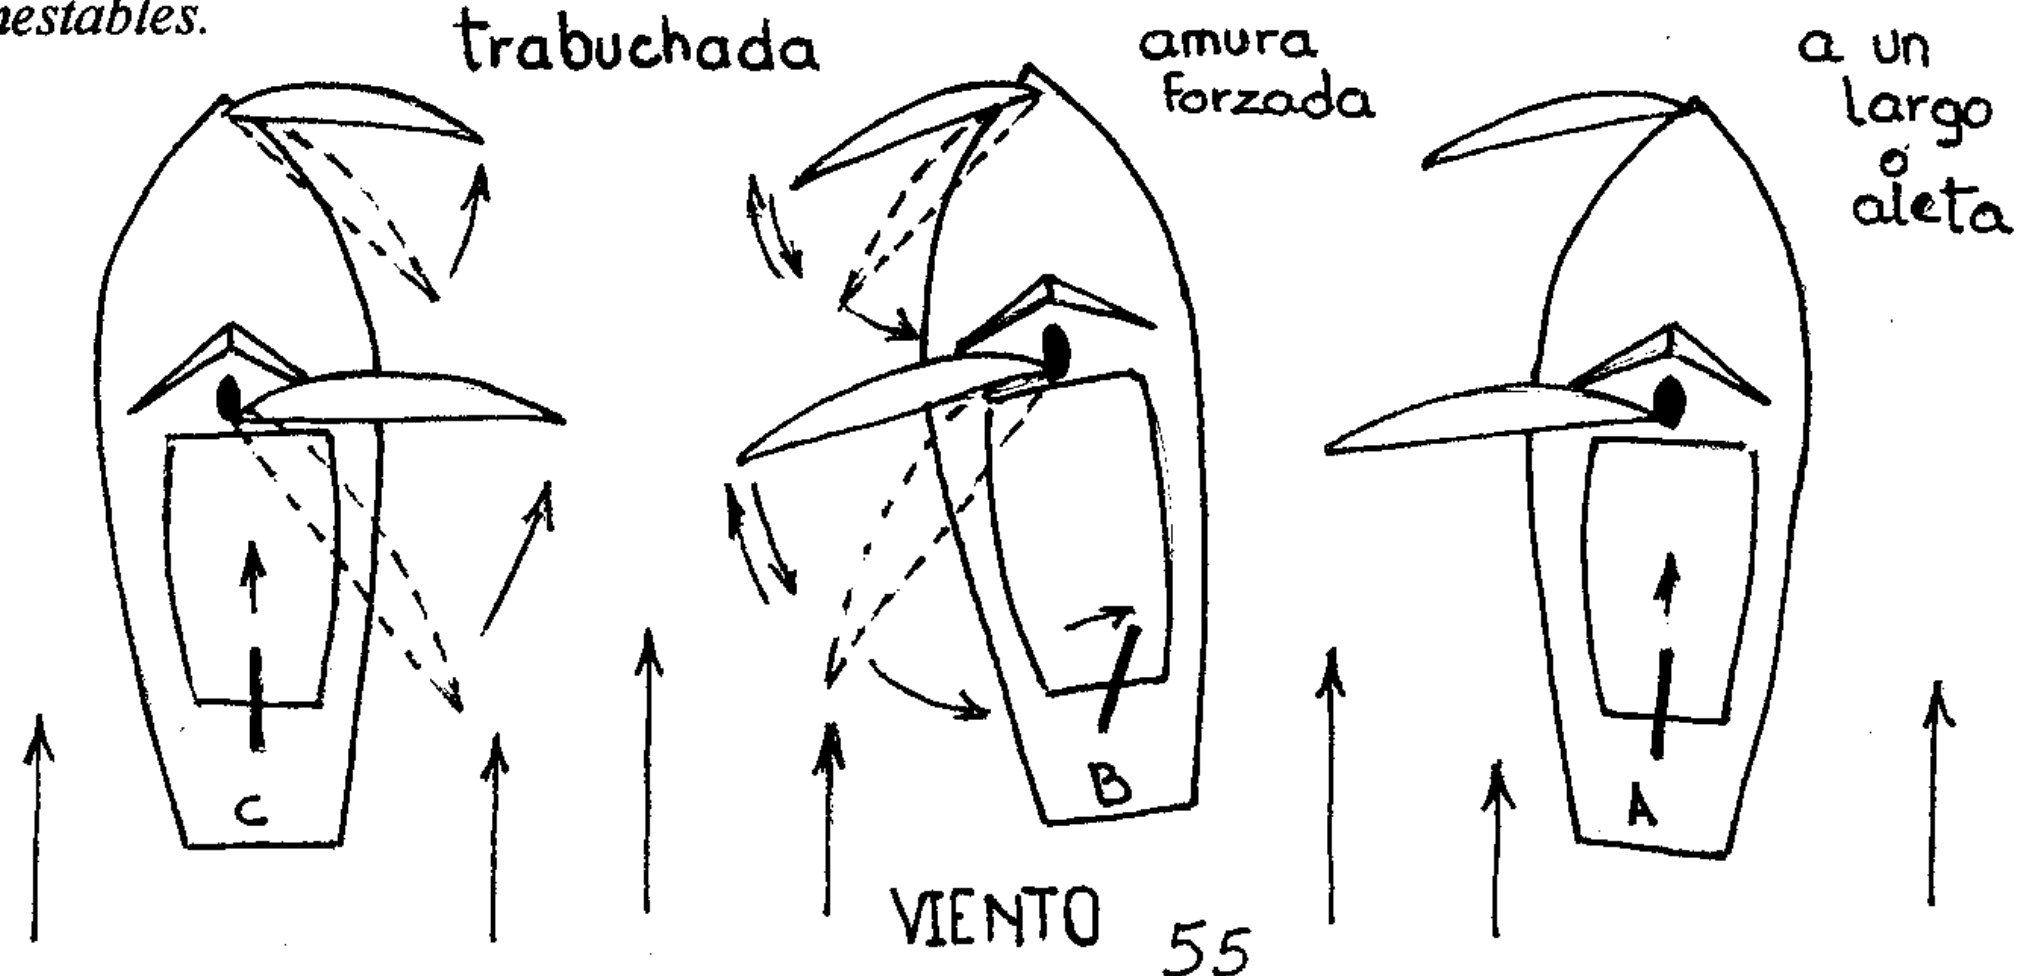 nestables.
trabuchada
amura
forzada
a un
largo
o
aleta
C
B
A
VIENTO
55